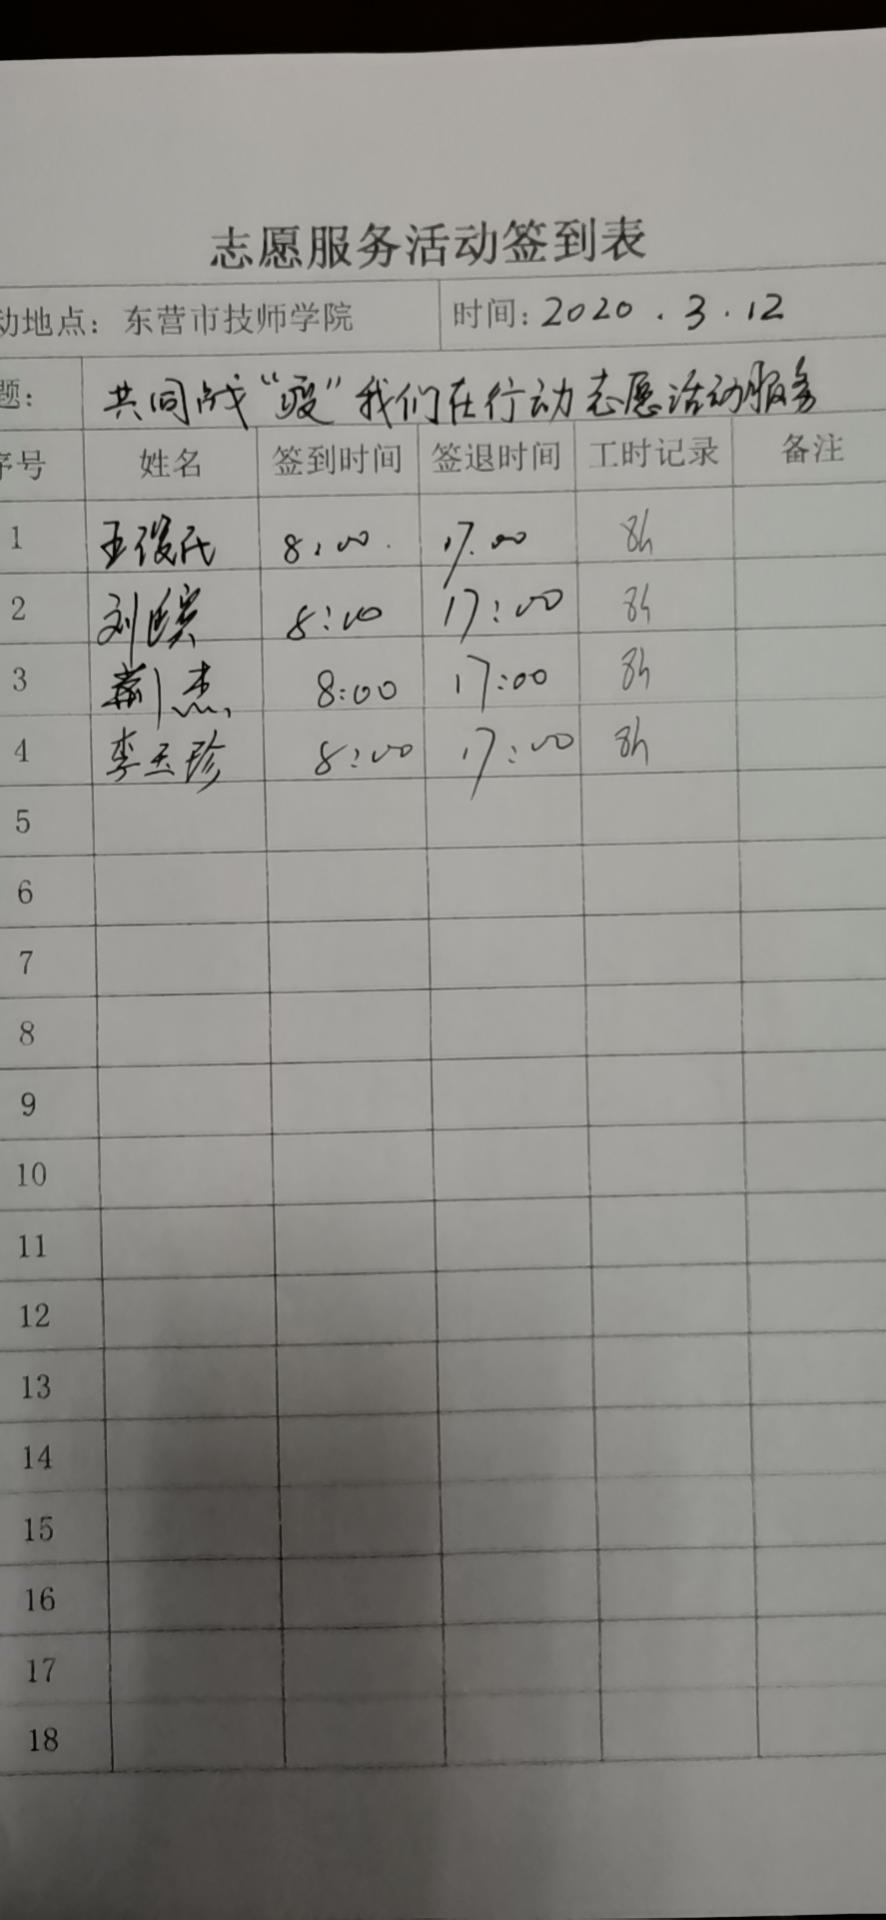 志愿服务活动签到表
动地点：东营市技师学院 时间：2020.3.12
题： 共同战“疫”我们在行动志愿活动服务
序号 姓名 签到时间 签退时间 工时记录 备注
1 王俊民 8:00 17:00 8h
2 刘 8:00 17:00 8h
3 荆杰 8:00 17:00 8h
4 李玉珍 8:00 17:00 8h
5
6
7
8
9
10
11
12
13
14
15
16
17
18